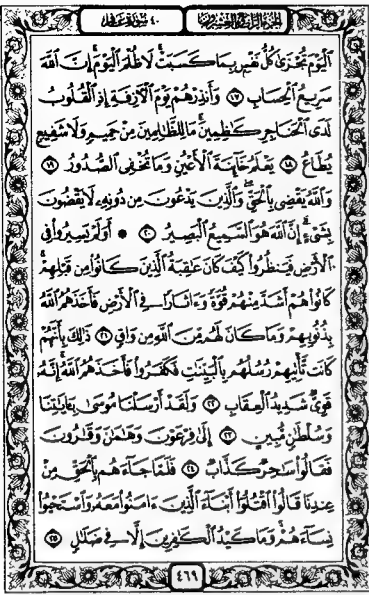 الجزء الرابع والعشرون ٤٠ سورة غافر
ٱلۡيَوۡمَ تُجۡزَىٰ كُلُّ نَفۡسِۭ بِمَا كَسَبَتۡۚ لَا ظُلۡمَ ٱلۡيَوۡمَۚ إِنَّ ٱللَّهَ
سَرِيعُ ٱلۡحِسَابِ ١٧ وَأَنذِرۡهُمۡ يَوۡمَ ٱلۡأٓزِفَةِ إِذِ ٱلۡقُلُوبُ
لَدَى ٱلۡحَنَاجِرِ كَٰظِمِينَۚ مَا لِلظَّٰلِمِينَ مِنۡ حَمِيمٖ وَلَا شَفِيعٖ
يُطَاعُ ١٨ يَعۡلَمُ خَآئِنَةَ ٱلۡأَعۡيُنِ وَمَا تُخۡفِي ٱلصُّدُورُ ١٩
وَٱللَّهُ يَقۡضِي بِٱلۡحَقِّۖ وَٱلَّذِينَ يَدۡعُونَ مِن دُونِهِۦ لَا يَقۡضُونَ
بِشَيۡءٍۗ إِنَّ ٱللَّهَ هُوَ ٱلسَّمِيعُ ٱلۡبَصِيرُ ٢٠ ۞ أَوَلَمۡ يَسِيرُواْ فِي
ٱلۡأَرۡضِ فَيَنظُرُواْ كَيۡفَ كَانَ عَٰقِبَةُ ٱلَّذِينَ كَانُواْ مِن قَبۡلِهِمۡۚ
كَانُواْ هُمۡ أَشَدَّ مِنۡهُمۡ قُوَّةٗ وَءَاثَارٗا فِي ٱلۡأَرۡضِ فَأَخَذَهُمُ ٱللَّهُ
بِذُنُوبِهِمۡ وَمَا كَانَ لَهُم مِّنَ ٱللَّهِ مِن وَاقٖ ٢١ ذَٰلِكَ بِأَنَّهُمۡ
كَانَت تَّأۡتِيهِمۡ رُسُلُهُم بِٱلۡبَيِّنَٰتِ فَكَفَرُواْ فَأَخَذَهُمُ ٱللَّهُۚ إِنَّهُۥ
قَوِيّٞ شَدِيدُ ٱلۡعِقَابِ ٢٢ وَلَقَدۡ أَرۡسَلۡنَا مُوسَىٰ بِـَٔايَٰتِنَا
وَسُلۡطَٰنٖ مُّبِينٍ ٢٣ إِلَىٰ فِرۡعَوۡنَ وَهَٰمَٰنَ وَقَٰرُونَ
فَقَالُواْ سَٰحِرٞ كَذَّابٞ ٢٤ فَلَمَّا جَآءَهُم بِٱلۡحَقِّ مِنۡ
عِندِنَا قَالُواْ ٱقۡتُلُوٓاْ أَبۡنَآءَ ٱلَّذِينَ ءَامَنُواْ مَعَهُۥ وَٱسۡتَحۡيُواْ
نِسَآءَهُمۡۚ وَمَا كَيۡدُ ٱلۡكَٰفِرِينَ إِلَّا فِي ضَلَٰلٖ ٢٥
٤٦٩